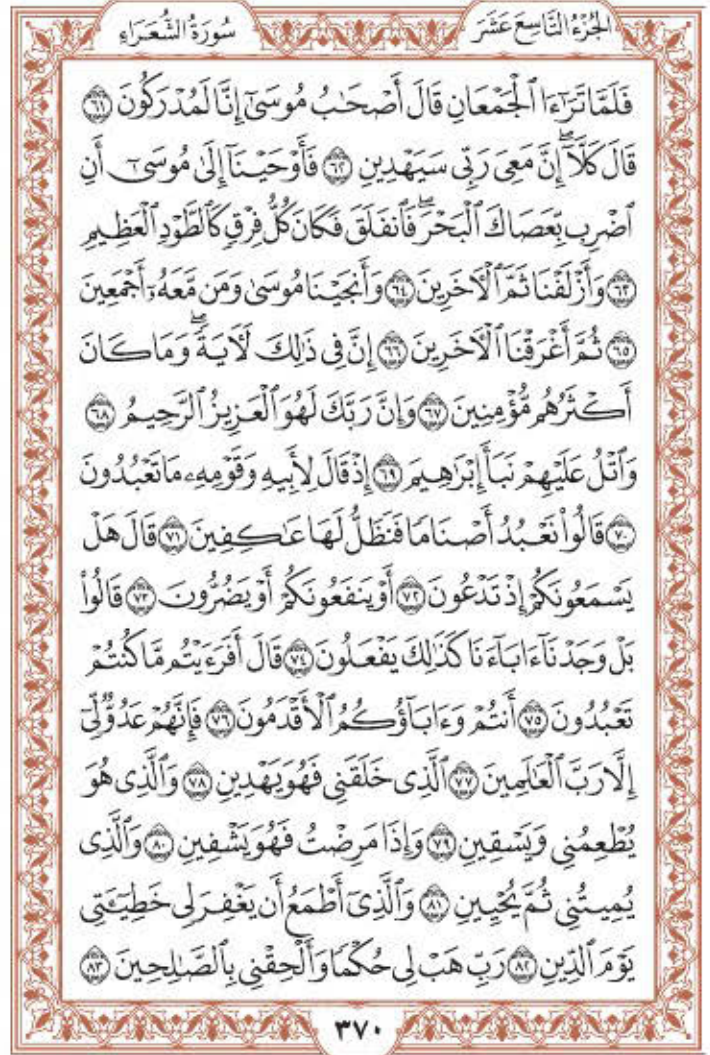 الجُزْءُ التَّاسِعَ عَشَرَ سُورَةُ الشُّعَرَاءِ
فَلَمَّا تَرَٰٓءَا ٱلْجَمْعَانِ قَالَ أَصْحَٰبُ مُوسَىٰٓ إِنَّا لَمُدْرَكُونَ ٦١
قَالَ كَلَّآۖ إِنَّ مَعِىَ رَبِّى سَيَهْدِينِ ٦٢ فَأَوْحَيْنَآ إِلَىٰ مُوسَىٰٓ أَنِ
ٱضْرِب بِّعَصَاكَ ٱلْبَحْرَۖ فَٱنفَلَقَ فَكَانَ كُلُّ فِرْقٍ كَٱلطَّوْدِ ٱلْعَظِيمِ
٦٣ وَأَزْلَفْنَا ثَمَّ ٱلْأَخَرِينَ ٦٤ وَأَنجَيْنَا مُوسَىٰ وَمَن مَّعَهُۥٓ أَجْمَعِينَ
٦٥ ثُمَّ أَغْرَقْنَا ٱلْأَخَرِينَ ٦٦ إِنَّ فِى ذَٰلِكَ لَأٓيَةًۖ وَمَا كَانَ
أَكْثَرُهُم مُّؤْمِنِينَ ٦٧ وَإِنَّ رَبَّكَ لَهُوَ ٱلْعَزِيزُ ٱلرَّحِيمُ ٦٨
وَٱتْلُ عَلَيْهِمْ نَبَأَ إِبْرَٰهِيمَ ٦٩ إِذْ قَالَ لِأَبِيهِ وَقَوْمِهِۦ مَا تَعْبُدُونَ
٧٠ قَالُوا۟ نَعْبُدُ أَصْنَامًا فَنَظَلُّ لَهَا عَٰكِفِينَ ٧١ قَالَ هَلْ
يَسْمَعُونَكُمْ إِذْ تَدْعُونَ ٧٢ أَوْ يَنفَعُونَكُمْ أَوْ يَضُرُّونَ ٧٣ قَالُوا۟
بَلْ وَجَدْنَآ ءَابَآءَنَا كَذَٰلِكَ يَفْعَلُونَ ٧٤ قَالَ أَفَرَءَيْتُم مَّا كُنتُمْ
تَعْبُدُونَ ٧٥ أَنتُمْ وَءَابَآؤُكُمُ ٱلْأَقْدَمُونَ ٧٦ فَإِنَّهُمْ عَدُوٌّ لِّىٓ
إِلَّا رَبَّ ٱلْعَٰلَمِينَ ٧٧ ٱلَّذِى خَلَقَنِى فَهُوَ يَهْدِينِ ٧٨ وَٱلَّذِى هُوَ
يُطْعِمُنِى وَيَسْقِينِ ٧٩ وَإِذَا مَرِضْتُ فَهُوَ يَشْفِينِ ٨٠ وَٱلَّذِى
يُمِيتُنِى ثُمَّ يُحْيِينِ ٨١ وَٱلَّذِىٓ أَطْمَعُ أَن يَغْفِرَ لِى خَطِيٓـَٔتِى
يَوْمَ ٱلدِّينِ ٨٢ رَبِّ هَبْ لِى حُكْمًا وَأَلْحِقْنِى بِٱلصَّٰلِحِينَ ٨٣
٣٧٠